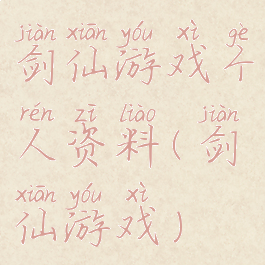 jiàn xiān yóu xì gè
剑仙游戏个
rén zī liào jiàn
人资料(剑
xiān yóu xì
仙游戏)